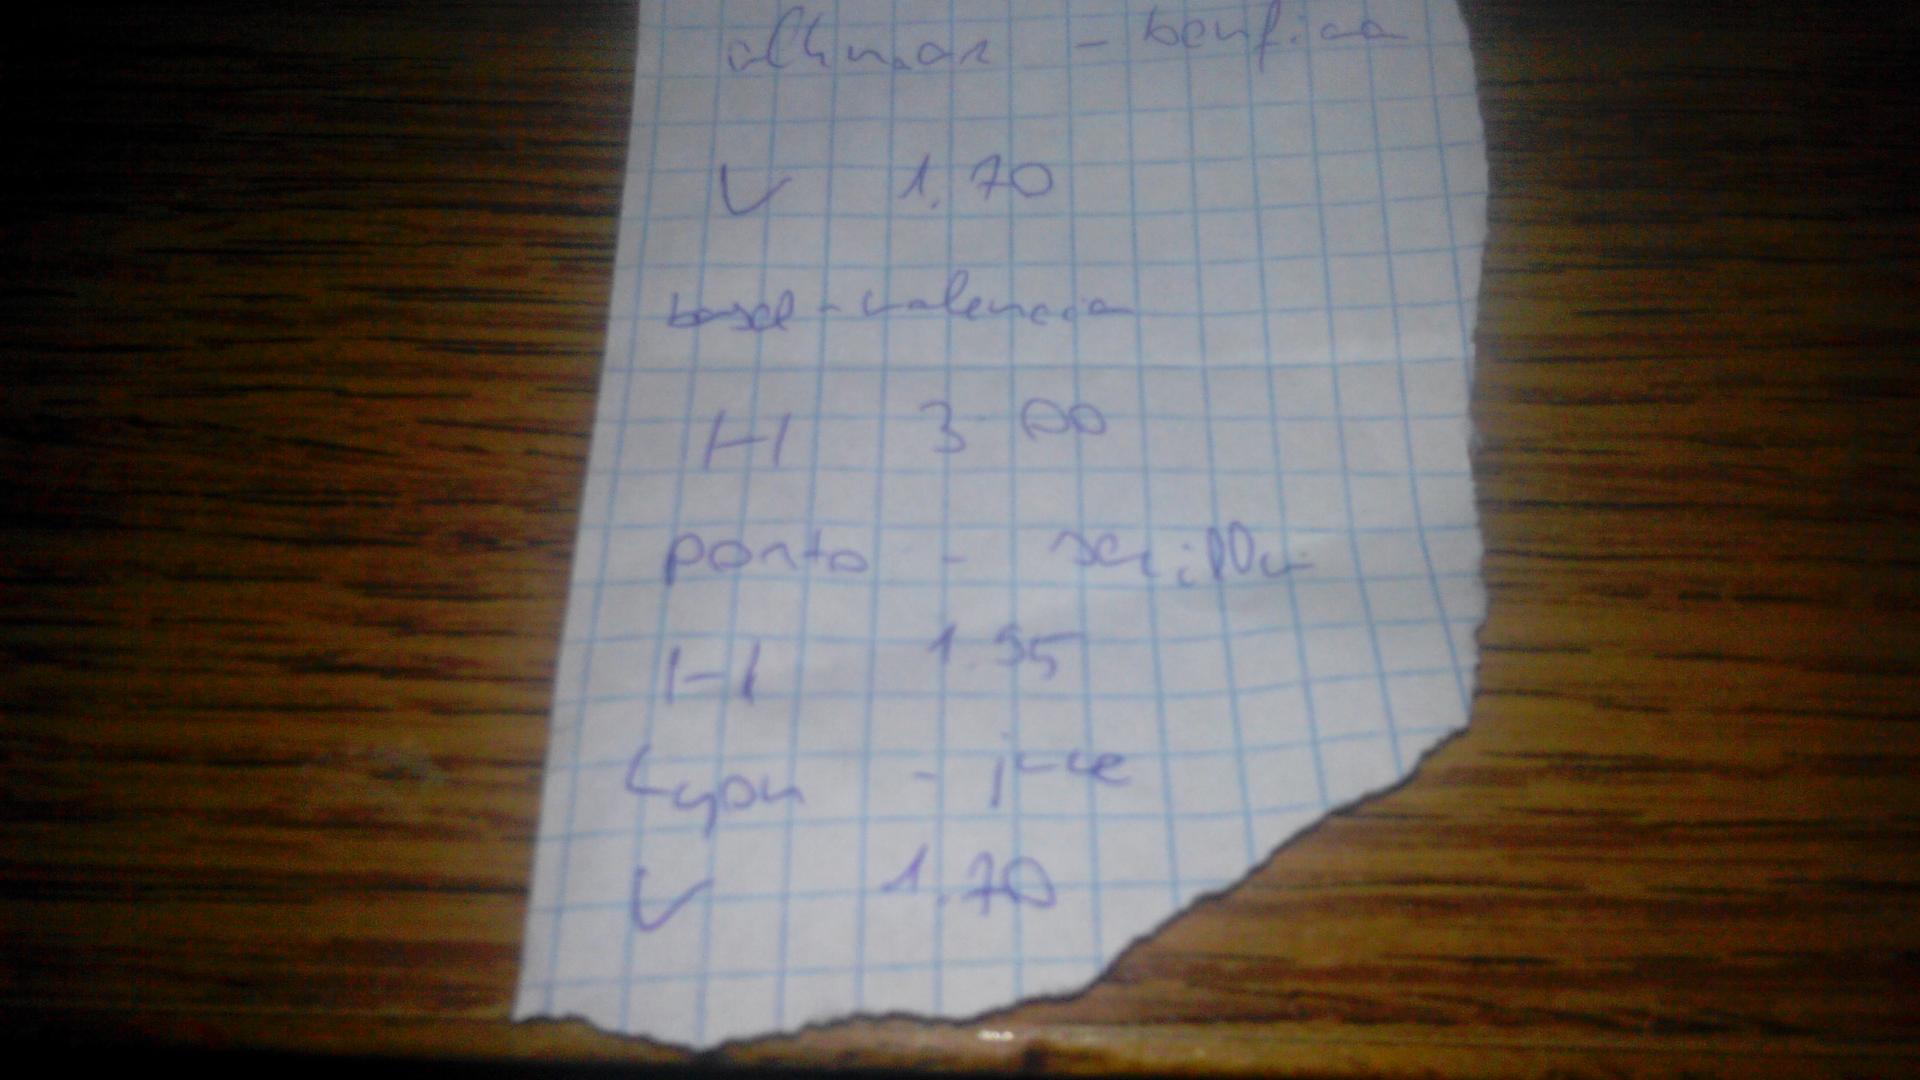 alkmaar - benfica
V 1.70
basel - valencia
H 3.00
porto - sevilla
H 1.95
Lyon - juve
V 1.70